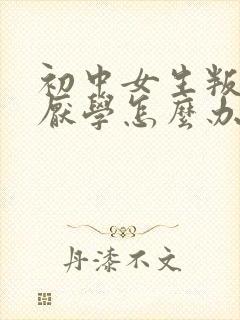 初中女生叛
厭學怎麼办
丹漆不文